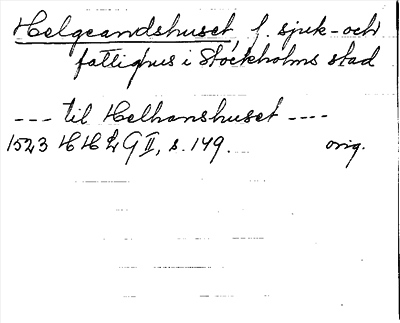 Helgeandshuset, f. sjuk- och
fattighus i Stockholms stad
--- til Helhanshuset ----
1523 HH 2 G II, s. 149. orig.